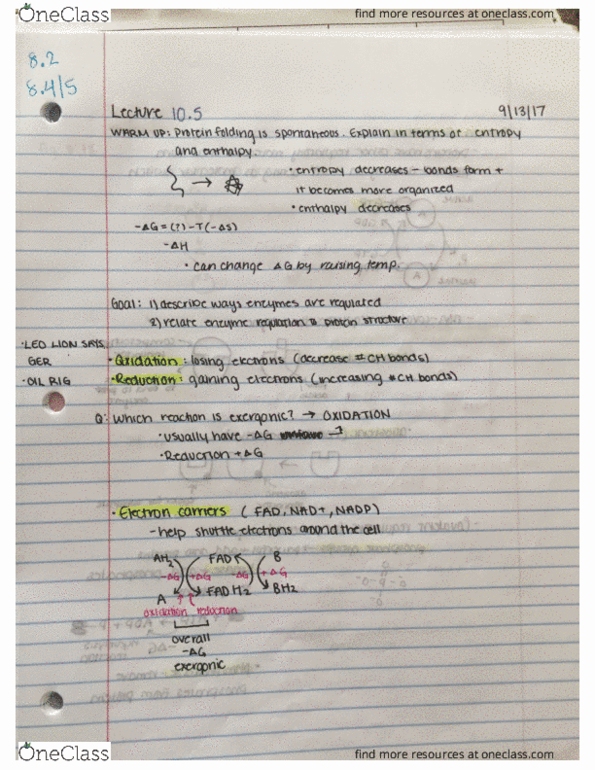 OneClass
find more resources at oneclass.com
8.2
8.4/5
Lecture 10.5
9/13/17
WARM UP: Protein folding is spontaneous. Explain in terms of entropy
and enthalpy.
→
• entropy decreases - bonds form +
it becomes more organized
• enthalpy decreases
-ΔG = (?) - T(-ΔS)
-ΔH
• can change ΔG by raising temp.
Goal: 1) describe ways enzymes are regulated
2) relate enzyme regulation to protein structure
• LEO LION SAYS
GER
• OIL RIG
• Oxidation: losing electrons (decrease # CH bonds)
• Reduction: gaining electrons (increasing # CH bonds)
Q: Which reaction is exergonic? → OXIDATION
• usually have -ΔG
• Reduction +ΔG
• Electron carriers (FAD, NAD+, NADP)
- help shuttle electrons around the cell
AH2 FAD B
-ΔG +ΔG -ΔG +ΔG
A FADH2 BH2
oxidation reduction
overall
-ΔG
exergonic
OneClass
find more resources at oneclass.com